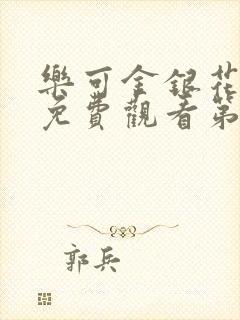 樂可金銀花
免費觀看第
郭兵